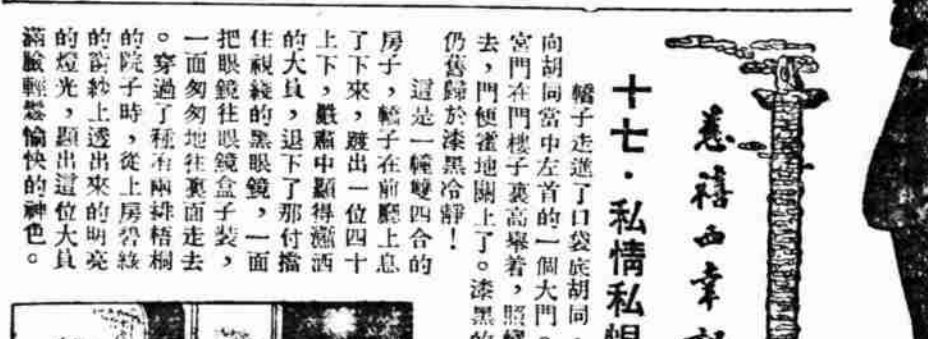 慈禧西幸記
十七·私情私
轎子走進了口袋底胡同
向胡同當中左首的一個大門
宮門在門樓子裏高舉着，照
去，門便霍地關上了。漆黑的
仍舊歸於漆黑冷靜！
這是一幢雙四合的
房子，轎子在前廳上息
了下來，踱出一位四十
上下，嚴肅中顯得瀟洒
的大員，退下了那付擋
住視綫的黑眼鏡，一面
把眼鏡往眼鏡盒子裝，
一面匆匆地往裏面走去
。穿過了種有兩排梧桐
的院子時，從上房碧綠
的窗紗上透出來的明亮
的燈光，顯出這位大員
滿臉輕鬆愉快的神色。